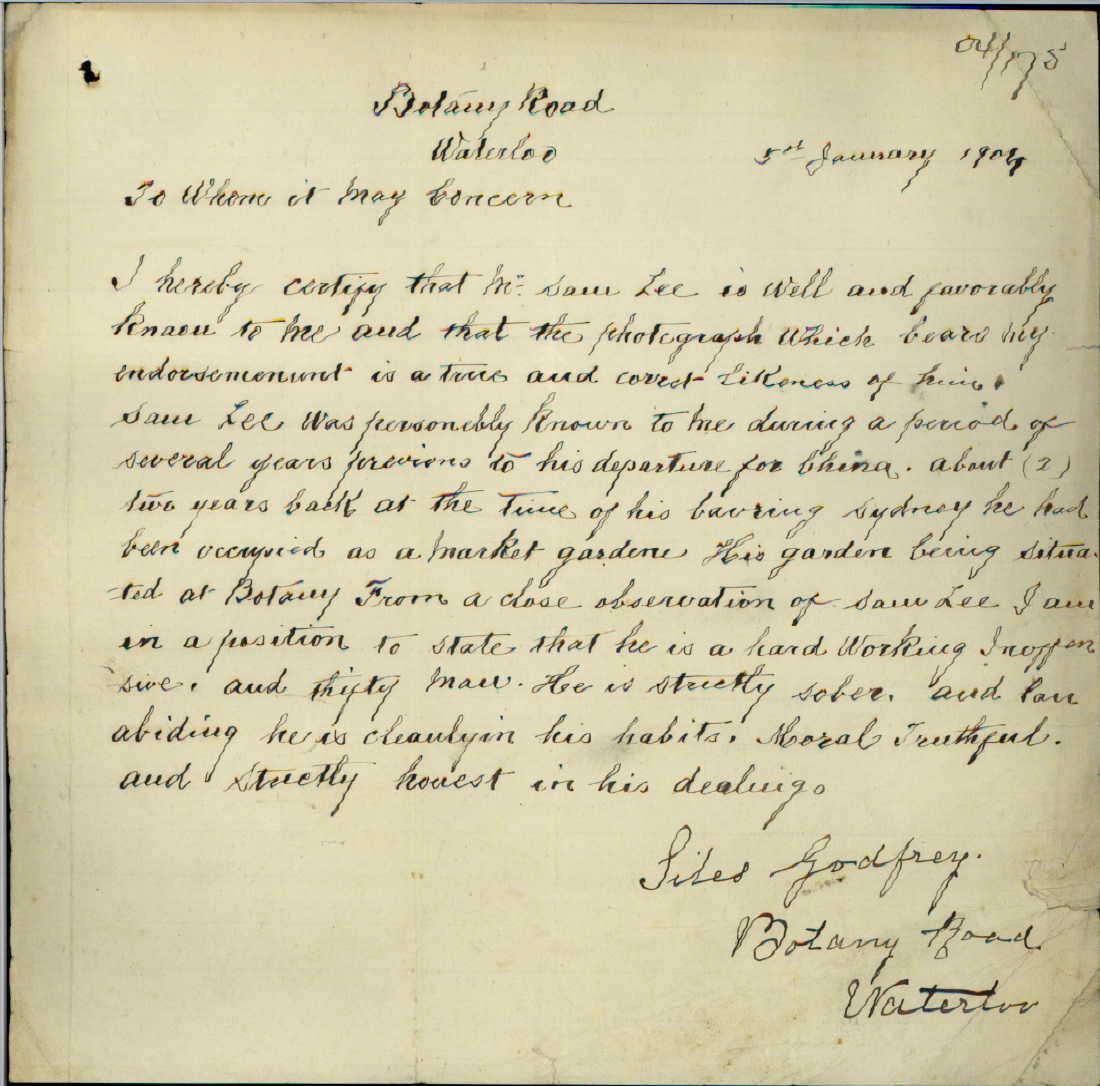 04/178
Botany Road
Waterloo
January 1904
To Whom it May Concern
I hereby certify that Mr. Sam Lee is Well and favorably
Known to Me and that the photograph Which bears My
endorsemonunt is a true and corret Likeness of him.
Sam Lee Was personebly Known to Me during a period of
several years previous to his departure for China. about (2)
two years back at the time of his leavring Sydney he had
been occupied as a Market gardene His garden being situa-
-ted at Botany From a close observation of Sam Lee I am
in a position to state that he is a hard Working Inoffen
sive. and thifty Man. He is strictly sober. and Law
abiding he is cleanly in his habits. Moral Truthful.
and Strictly honest in his dealings
Siles Godfrey.
Botany Road
Waterloo